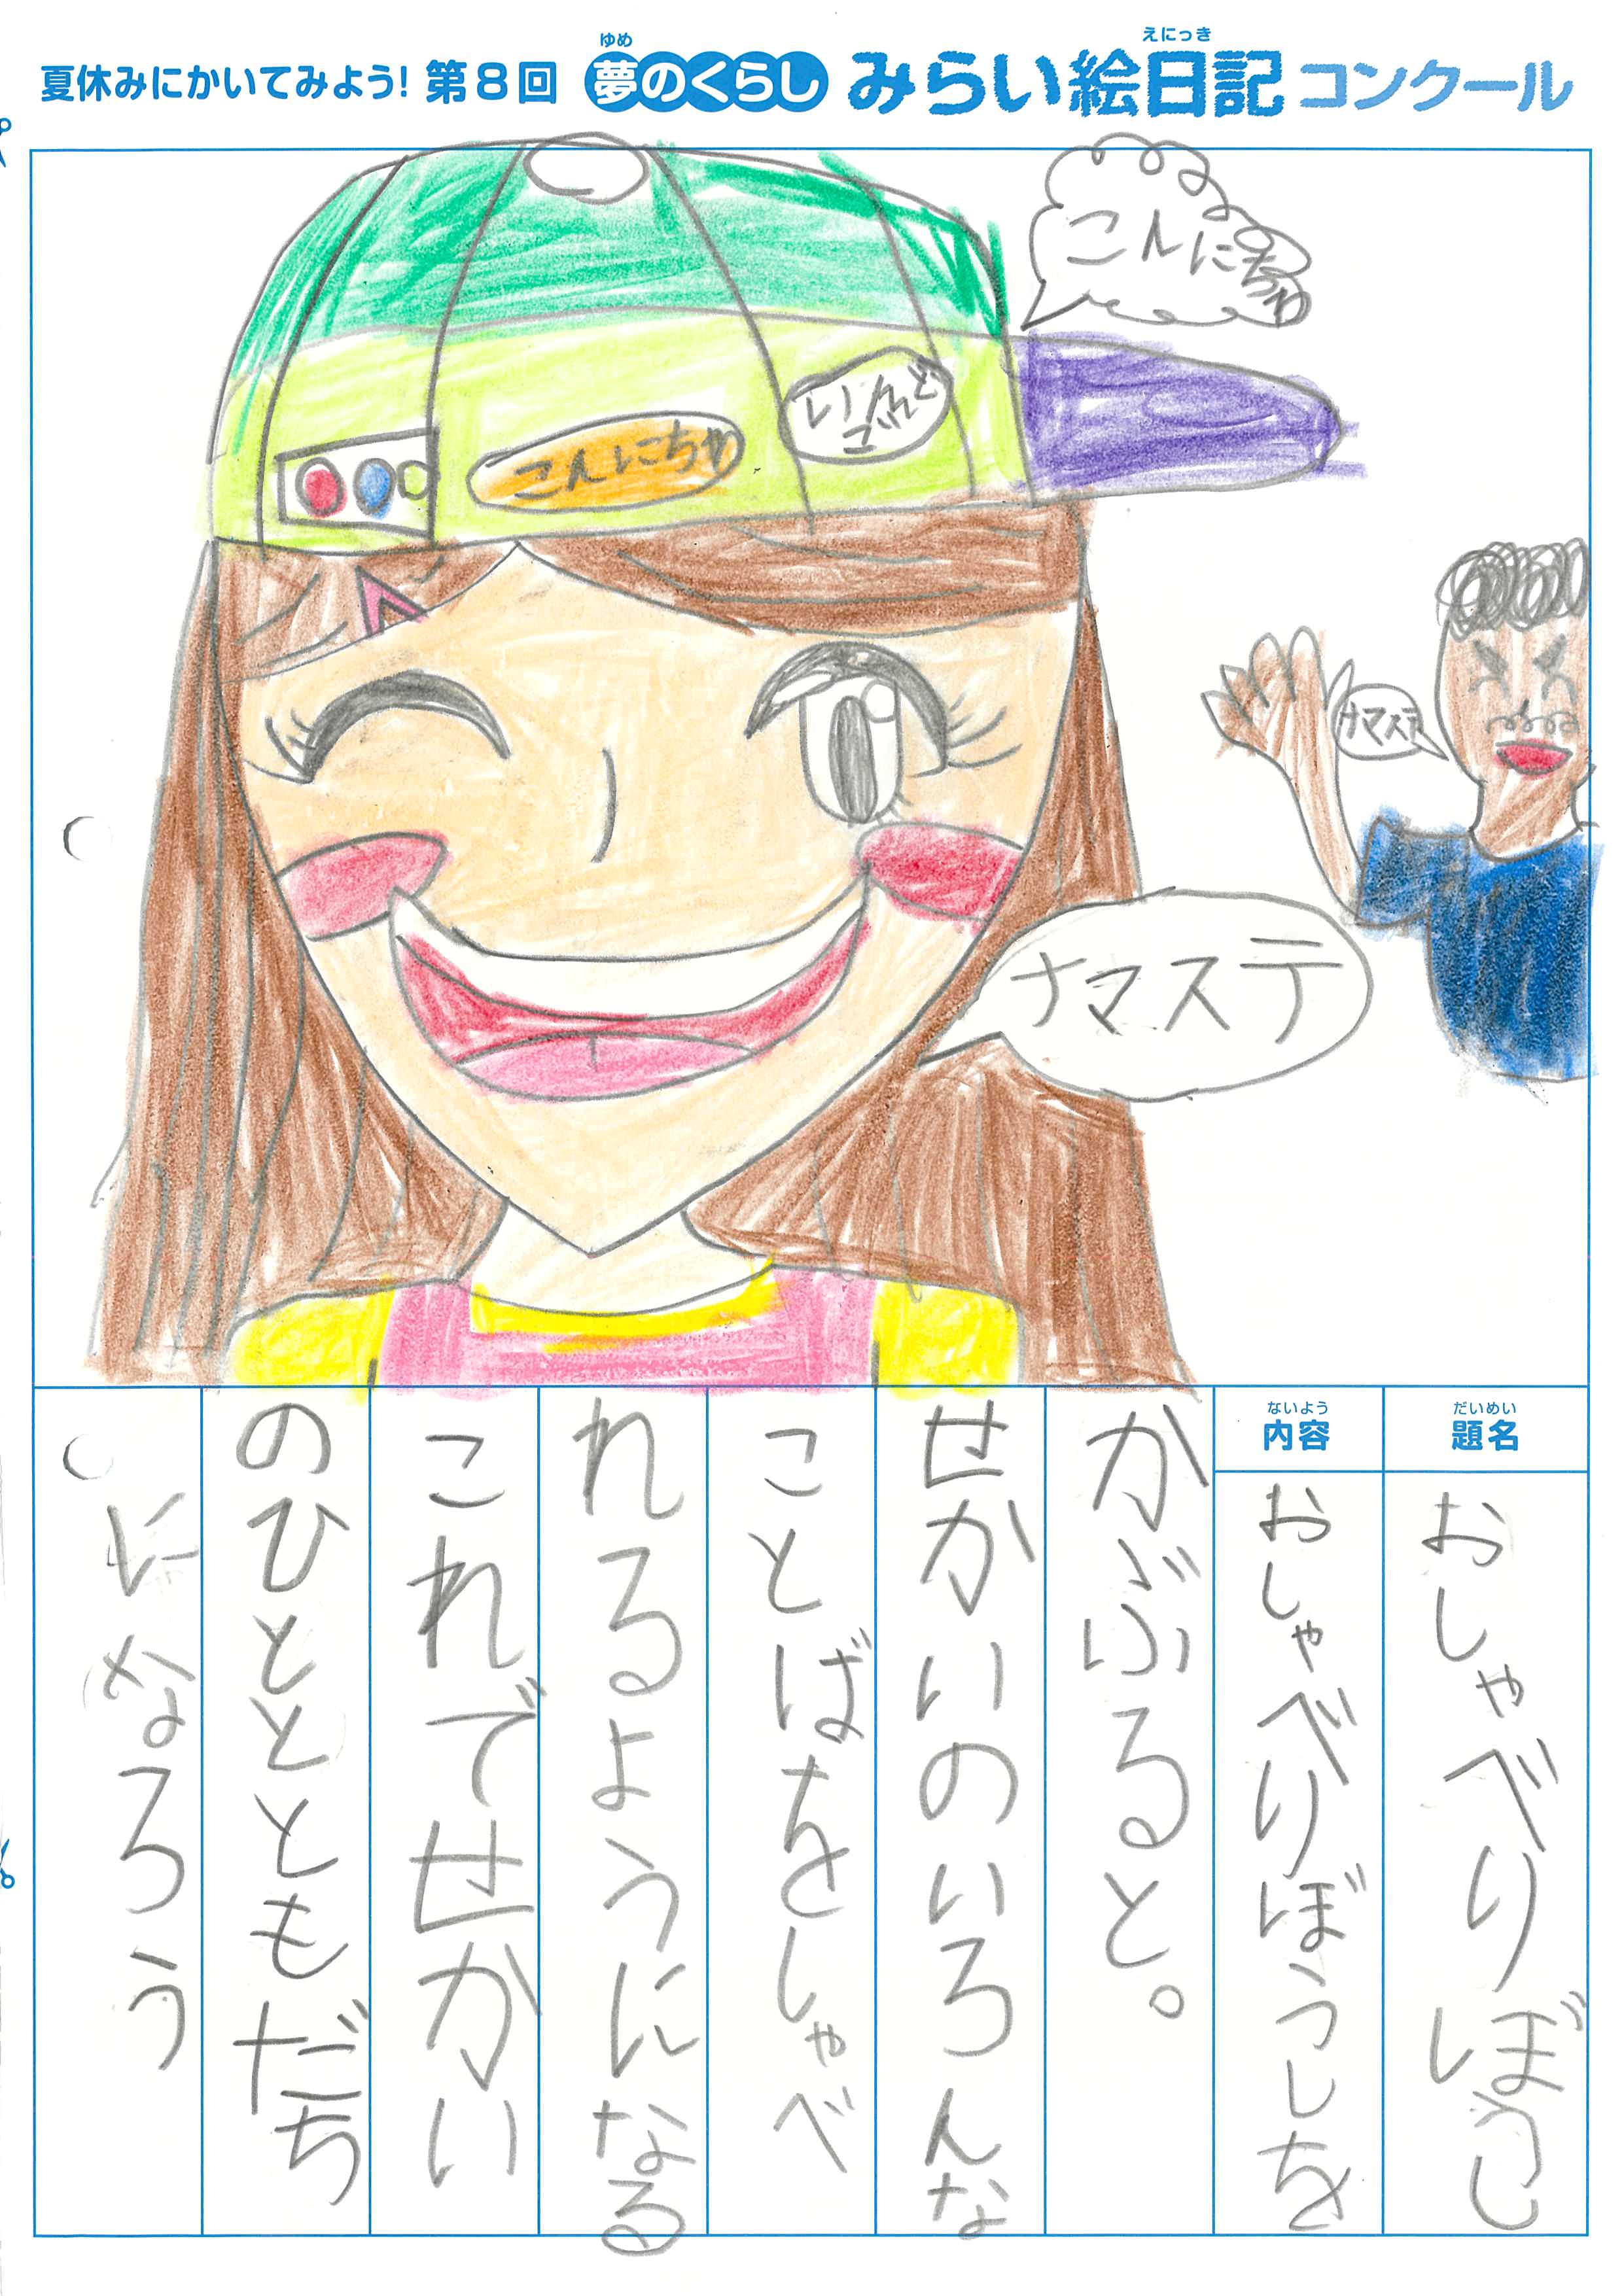 ゆめ
えにっき
夏休みにかいてみよう! 第8回 夢のくらし みらい絵日記 コンクール
こんにちわ
いんど
ご
こんにちわ
ナマステ
ナマステ
だいめい
題名
おしゃべりぼうし
ないよう
内容
おしゃべりぼうしを
かぶると。
せかいのいろんな
ことばをしゃべ
れるようになる
これでせかい
のひととともだち
になろう